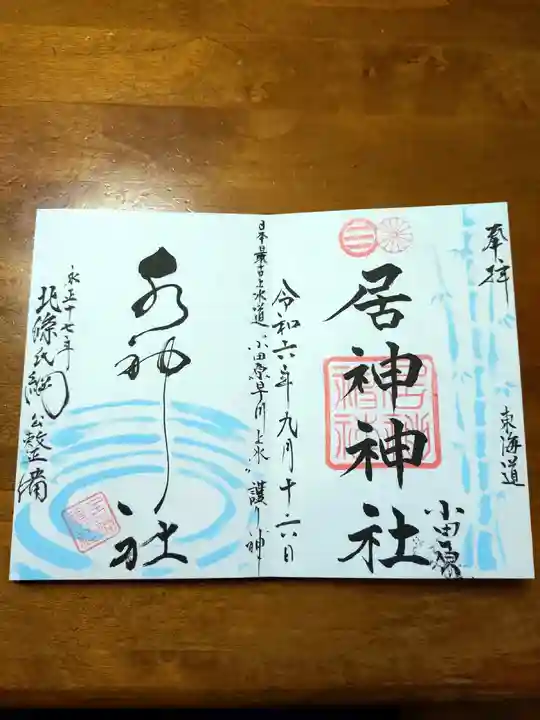 奉拝
東海道
小田原
居神神社
令和六年九月十六日
日本最古上水道"小田原早川上水"護り神
水神社
永正十七年
北條氏綱公整備